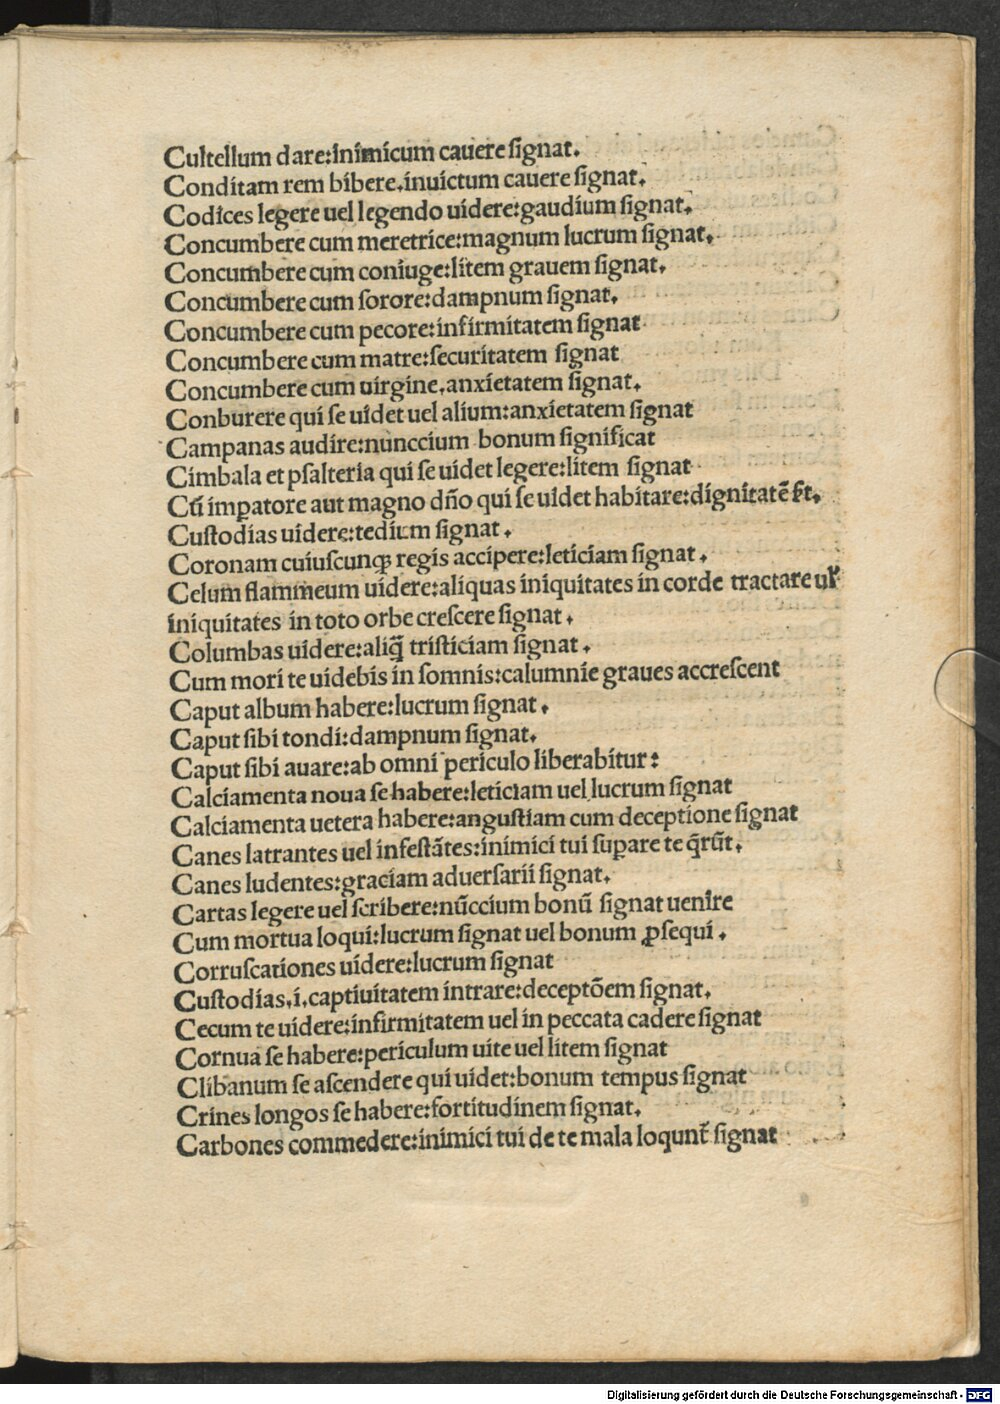 Cultellum dare:inimicum cauere ſignat.
Conditam rem bibere.inuictum cauere ſignat.
Codices legere uel legendo uidere:gaudium ſignat.
Concumbere cum meretrice:magnum lucrum ſignat.
Concumbere cum coniuge:litem grauem ſignat.
Concumbere cum ſorore:dampnum ſignat.
Concumbere cum pecore:infirmitatem ſignat
Concumbere cum matre:ſecuritatem ſignat
Concumbere cum uirgine.anxietatem ſignat.
Conburere qui ſe uidet uel alium:anxietatem ſignat
Campanas audire:nunccium bonum ſignificat
Cimbala et pſalteria qui ſe uidet legere:litem ſignat
Cū imꝑatore aut magno dño qui ſe uidet habitare:dignitatē ſt.
Cuſtodias uidere:tedium ſignat.
Coronam cuiuſcunqꝫ regis accipere:leticiam ſignat.
Celum flammeum uidere:aliquas iniquitates in corde tractare uł
iniquitates in toto orbe creſcere ſignat.
Columbas uidere:aliq̄ triſticiam ſignat.
Cum mori te uidebis in ſomnis:calumnie graues accreſcent
Caput album habere:lucrum ſignat.
Caput ſibi tondi:dampnum ſignat.
Caput ſibi auare:ab omni periculo liberabitur:
Calciamenta noua ſe habere:leticiam uel lucrum ſignat
Calciamenta uetera habere:anguſtiam cum deceptione ſignat
Canes latrantes uel infeſtātes:inimici tui ſuꝑare te q̄rūt.
Canes ludentes:graciam aduerſarii ſignat.
Cartas legere uel ſcribere:nūccium bonū ſignat uenire
Cum mortua loqui:lucrum ſignat uel bonum ꝓſequi.
Corruſcationes uidere:lucrum ſignat
Cuſtodias.i.captiuitatem intrare:deceptōem ſignat.
Cecum te uidere:infirmitatem uel in peccata cadere ſignat
Cornua ſe habere:periculum uite uel litem ſignat
Clibanum ſe aſcendere qui uidet:bonum tempus ſignat
Crines longos ſe habere:fortitudinem ſignat.
Carbones commedere:inimici tui de te mala loqunt̄ ſignat
Digitalisierung gefördert durch die Deutsche Forschungsgemeinschaft - DFG